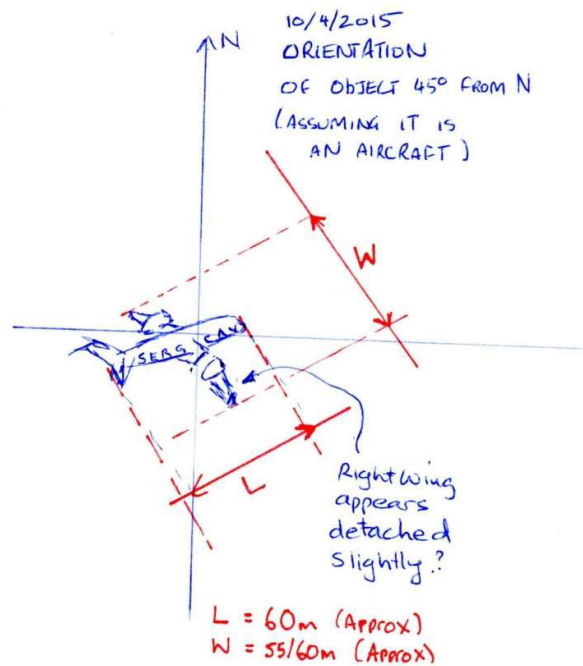 10/4/2015
N
ORIENTATION
OF OBJECT 45° FROM N
(ASSUMING IT IS
AN AIRCRAFT)
W
SERG CAV
L
Right wing
appears
detached
slightly?
L = 60m (Approx)
W = 55/60m (Approx)